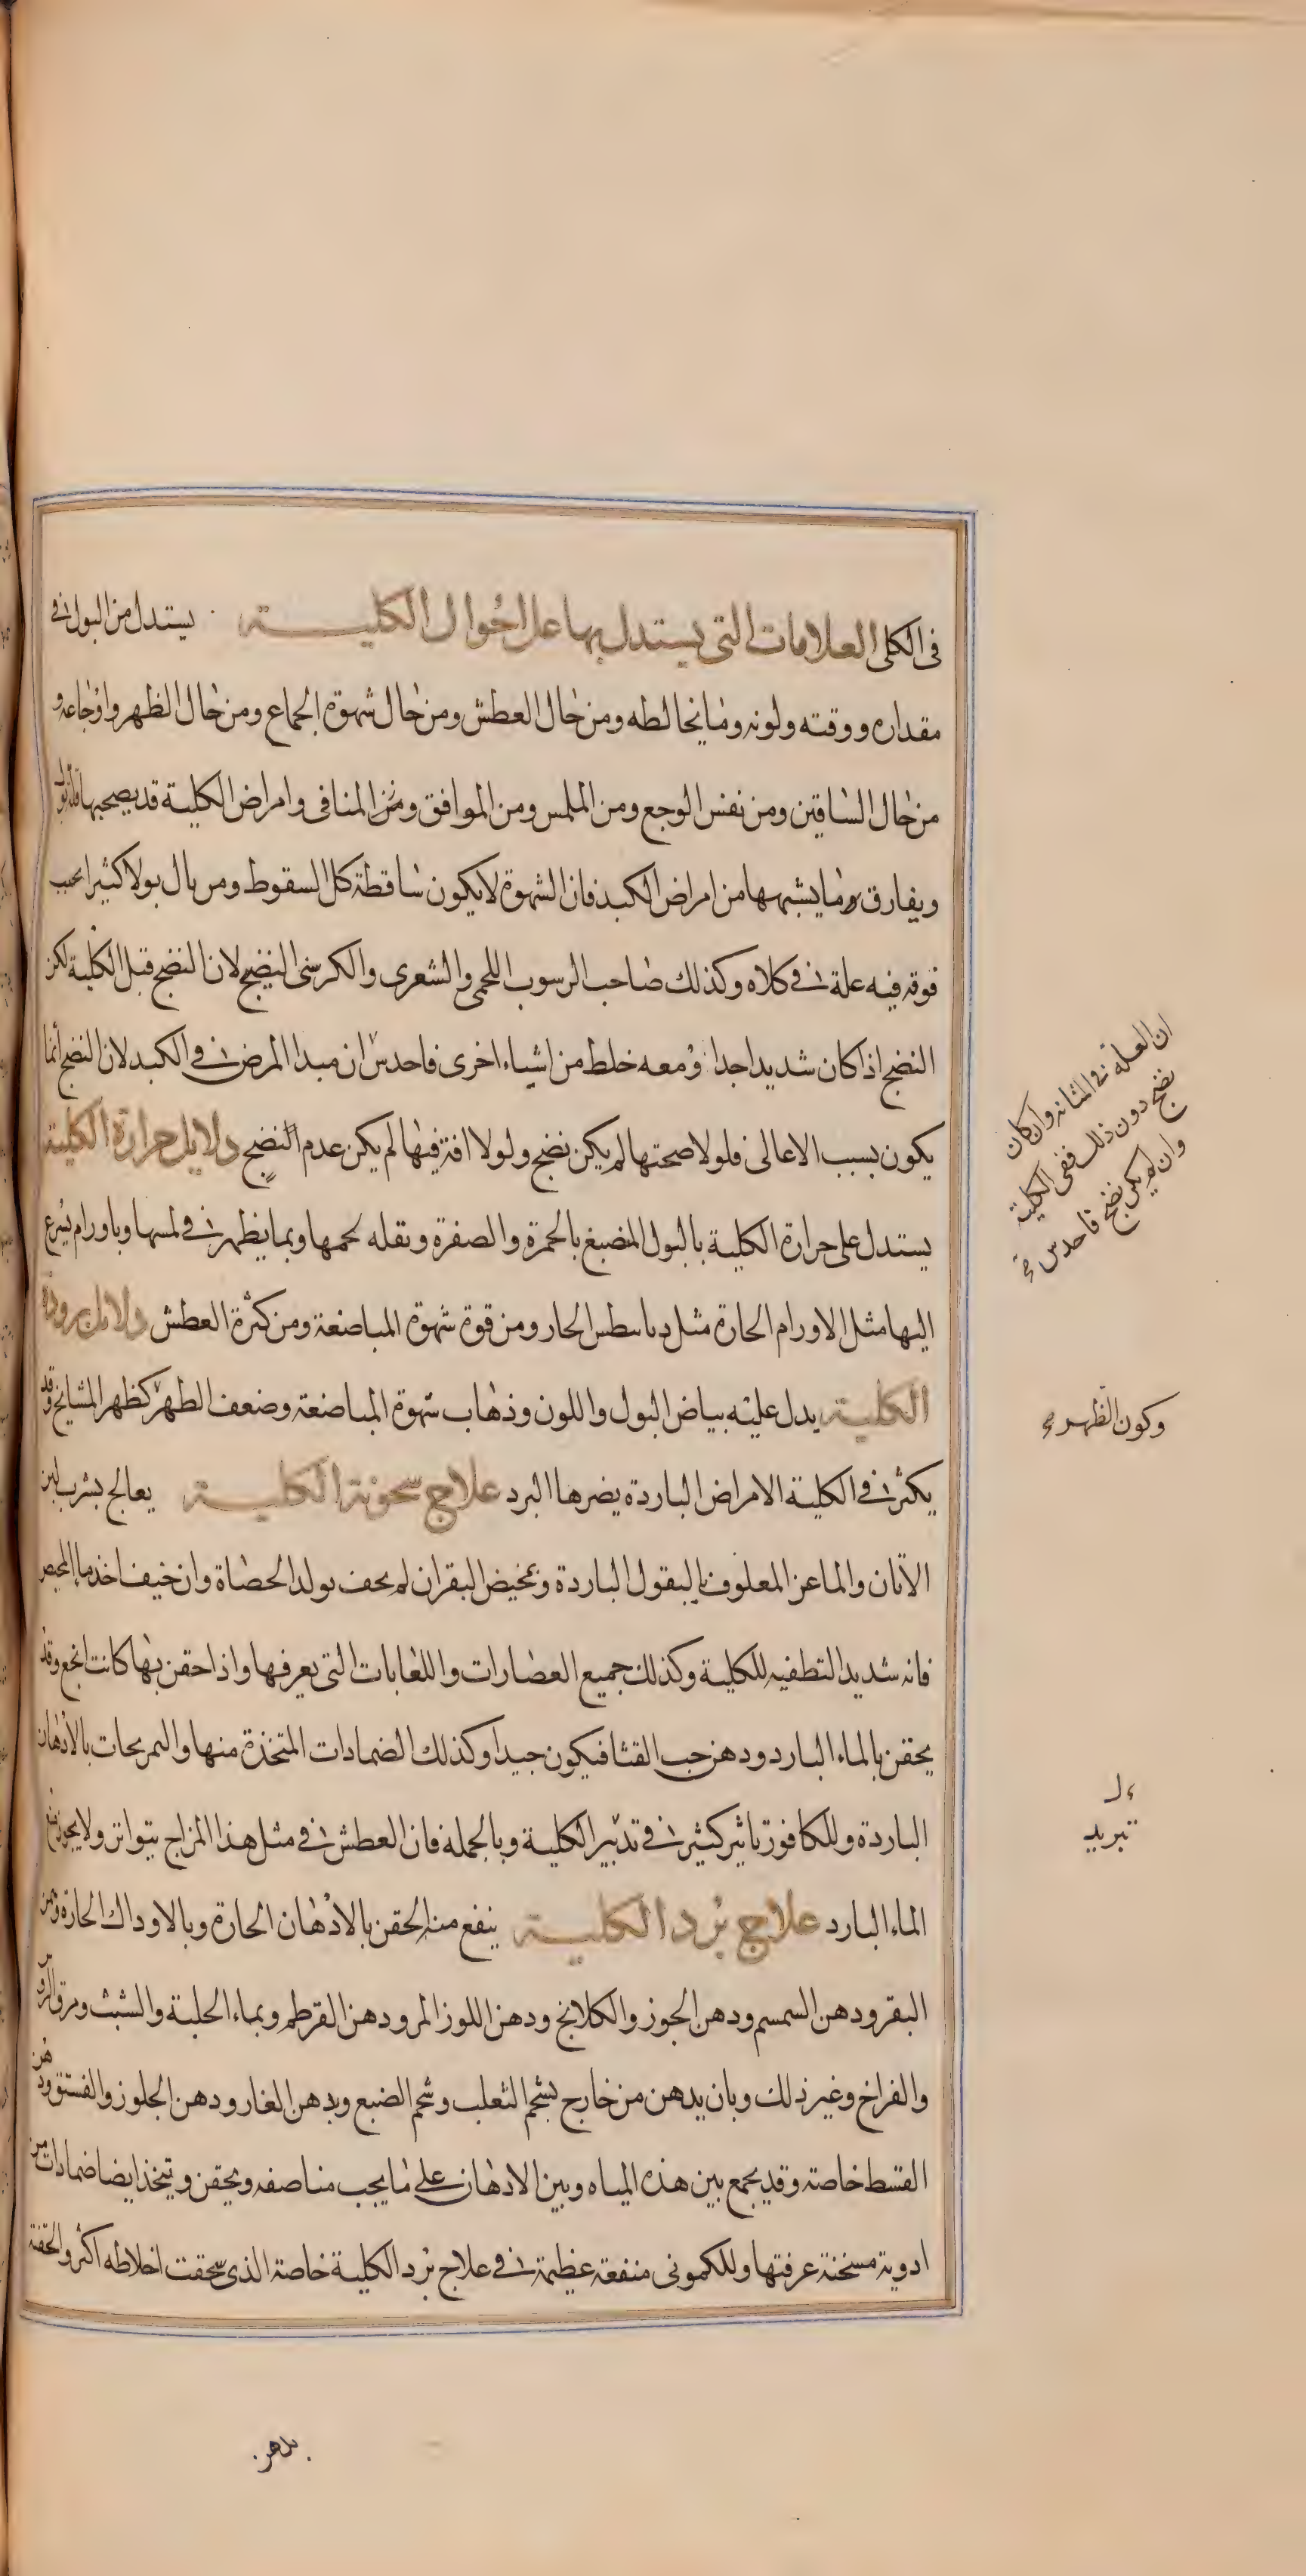 فى الكلى العلامات التى يستدل بها على احوال الكلية يستدل من البول فى
مقداره ووقته ولونه وما يخالطه ومن حال العطش ومن حال شهوة الجماع ومن حال الظهر واوجاعه و
من حال الساقين ومن نفس الوجع ومن الملمس ومن الموافق ومن المنافى وامراض الكلية قد يصحبها قلة بول
ويفارق وما يشبهها من امراض الكبد فان الشهوة لا يكون ساقطة كل السقوط ومن بال بولا كثيرا بحبب
فوقه فيه علة فى كلاه وكذلك صاحب الرسوب اللحمى والشعرى والكرسنى النضيج لان النضج قبل الكلية لكن
النضج اذا كان شديدا جدا ومعه خلط من اشياء اخرى فاحدس ان مبدا المرض فى الكبد لان النضج انما
يكون بسبب الاعالى فلولا صحتها لم يكن نضج ولولا افة فيها لم يكن عدم النضج دلايل حرارة الكلية
يستدل على حرارة الكلية بالبول المنصبغ بالحمرة والصفرة وبقله لحمها وبما يظهر فى لمسها وباورام يسرع
اليها مثل الاورام الحارة مثل دياسطس الحار ومن قوة شهوة المباضعة ومن كثرة العطش دلايل برودة
الكلية يدل عليه بياض البول واللون وذهاب شهوة المباضعة وضعف الظهر كظهر المشايخ وقد
يكثر فى الكلية الامراض الباردة يضرها البرد علاج سخونة الكلية يعالج بشرب لبن
الاتان والماعز المعلوف بالبقول الباردة وبمخيض البقر ان لم يخف تولد الحصاة وان خيف اخذ ماء المخيض
فانه شديد التطفيه للكلية وكذلك جميع العصارات واللعابات التى يعرفها واذا احقن بها كانت انجع وقد
يحقن بالماء البارد ودهن حب القثا فيكون جيدا وكذلك الضمادات المتخذة منها والتمريخات بالادهان
الباردة وللكافور تاثير كثير فى تدبير الكلية وبالجمله فان العطش فى مثل هذا المزاج يتواتر ولا يجوز منع
الماء البارد علاج برد الكلية ينفع منه الحقن بالادهان الحارة وبالاوداك الحارة وسمن
البقر ودهن السمسم ودهن الجوز والكلانج ودهن اللوز المر ودهن القرطم وبماء الحلبة والشبث ومرق الروس
والفراخ وغير ذلك وبان يدهن من خارج بشحم الثعلب وشحم الضبع وبدهن الغار ودهن الجلوز والفستق ودهن
القسط خاصة وقد يجمع بين هذه المياه وبين الادهان على ما يجب مناصفه ويحقن ويتخذ ايضا ضمادات من
ادوية مسخنة عرفتها وللكمونى منفعة عظيمة فى علاج برد الكلية خاصة الذى سحقت اخلاطه اكثر والحقنة
ان العلة فى المثانه وان كان
نضج دون ذلك ففى الكلية
وان لم يكن نضج فاحدس
وكون الظهر
تبريد
بدهن